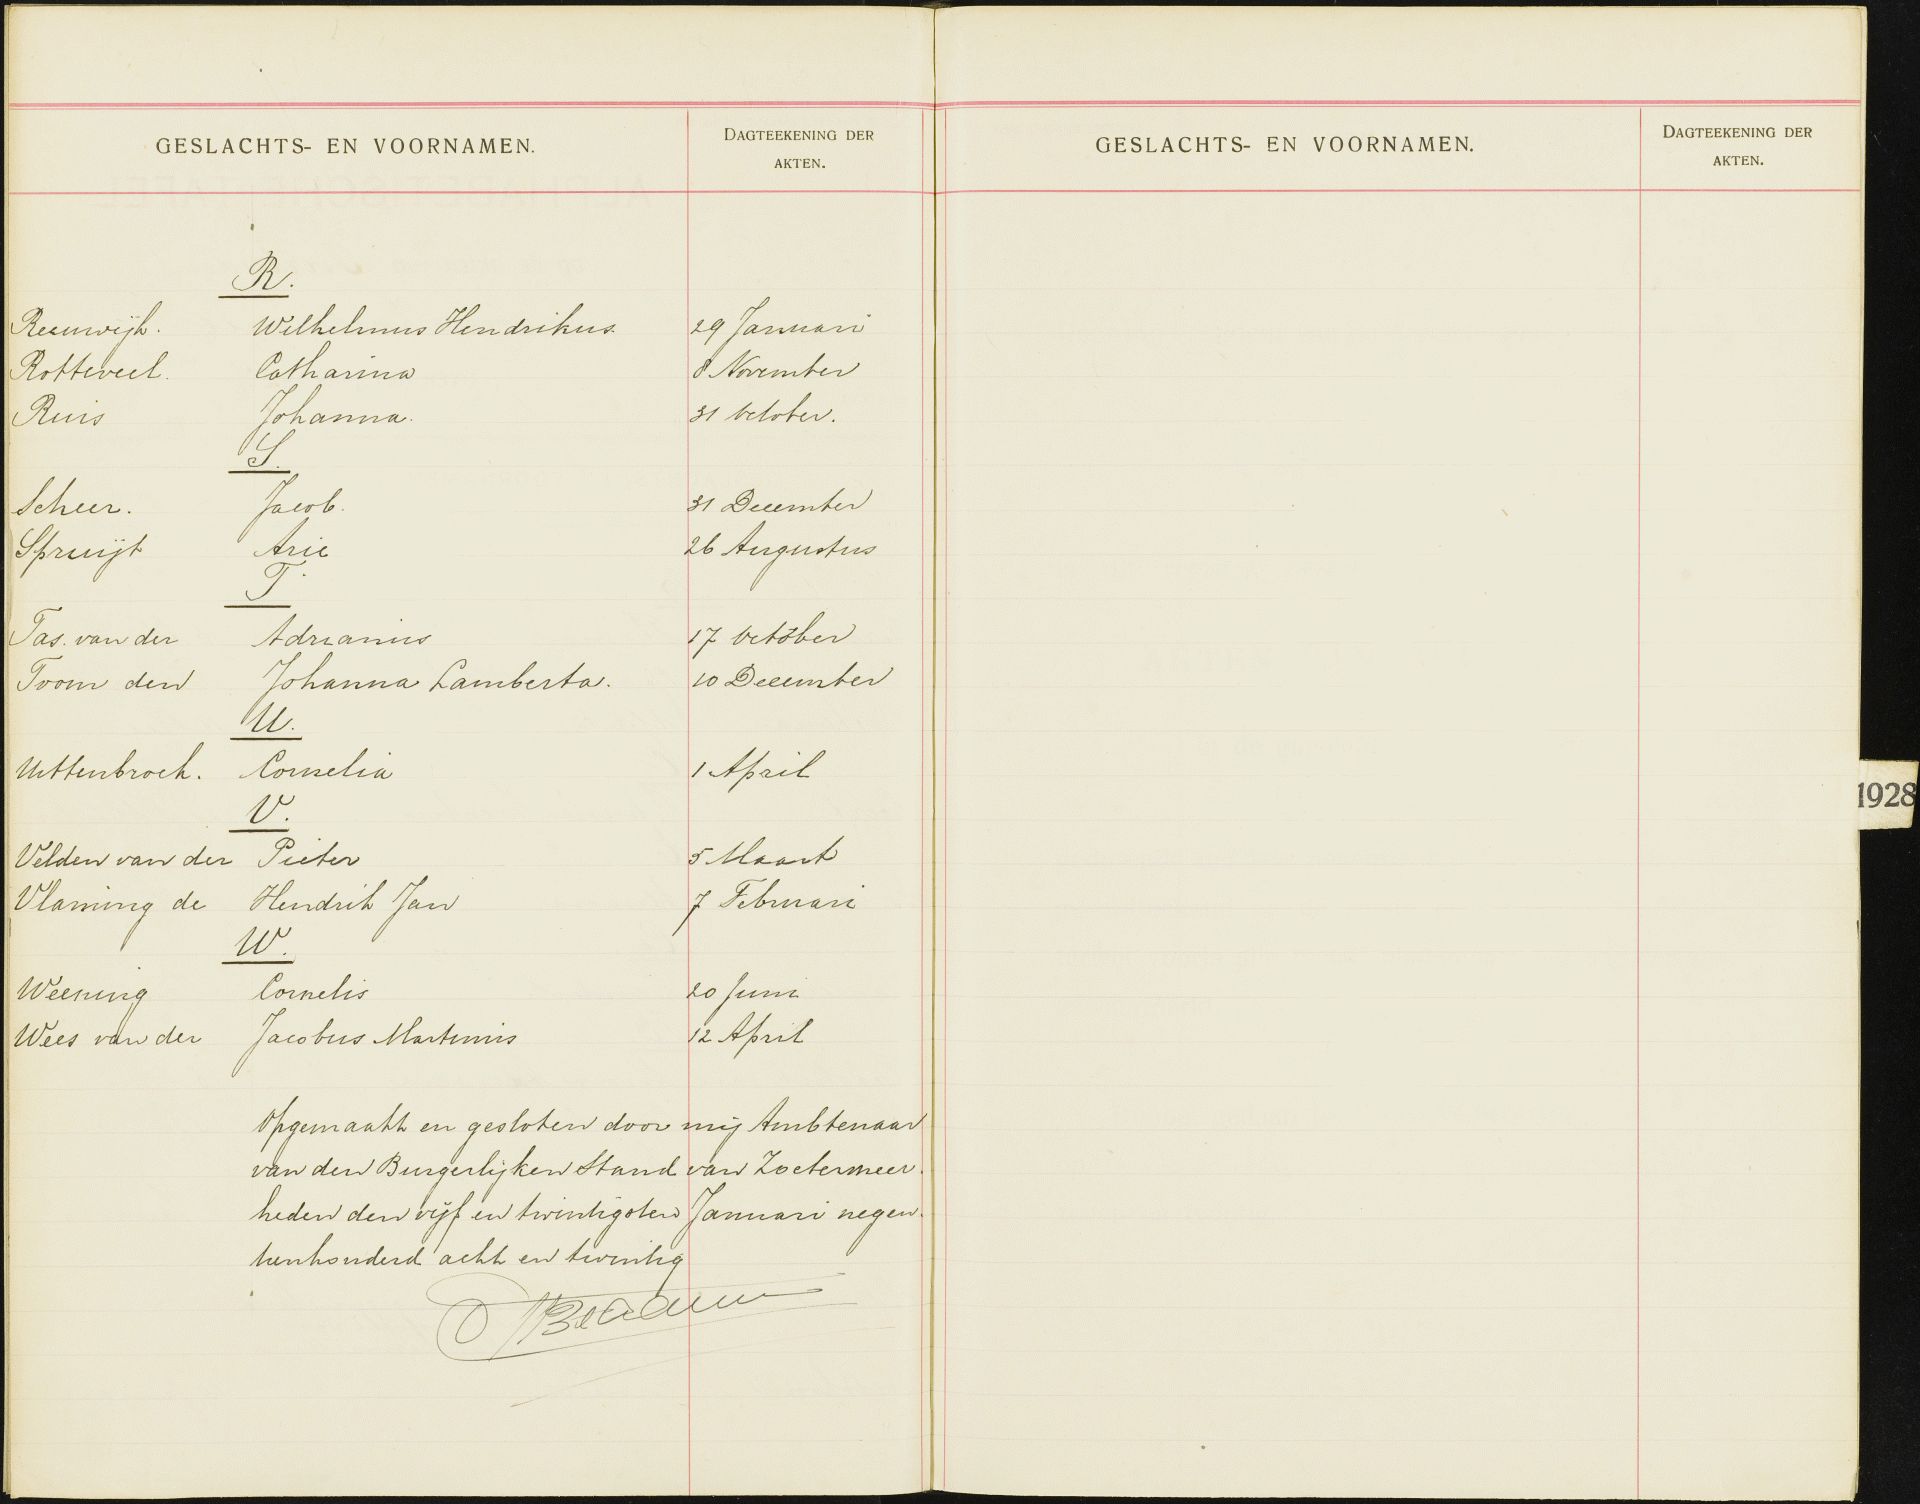 GESLACHTS- EN VOORNAMEN. DAGTEEKENING DER AKTEN.
R.
Reeuwijk. Wilhelmus Hendrikus. 29 Januari
Rotteveel. Catharina 8 November
Ruis Johanna. 31 October.
S.
Scheer. Jacob. 31 December
Spruijt Arie 26 Augustus
T.
Tas. van der Adrianus 17 October
Toom den Johanna Lamberta. 10 December
U.
Uittenbroek. Cornelia 1 April
V.
Velden van der Pieter 5 Maart
Vlaming de Hendrik Jan 7 Februari
W.
Weening Cornelis 20 Juni
Wees van der Jacobus Martinus 12 April
Opgemaakt en gesloten door mij Ambtenaar
van den Burgerlijken Stand van Zoetermeer.
heden den vijf en twintigsten Januari negen-
tienhonderd acht en twintig
GESLACHTS- EN VOORNAMEN. DAGTEEKENING DER AKTEN.
1928